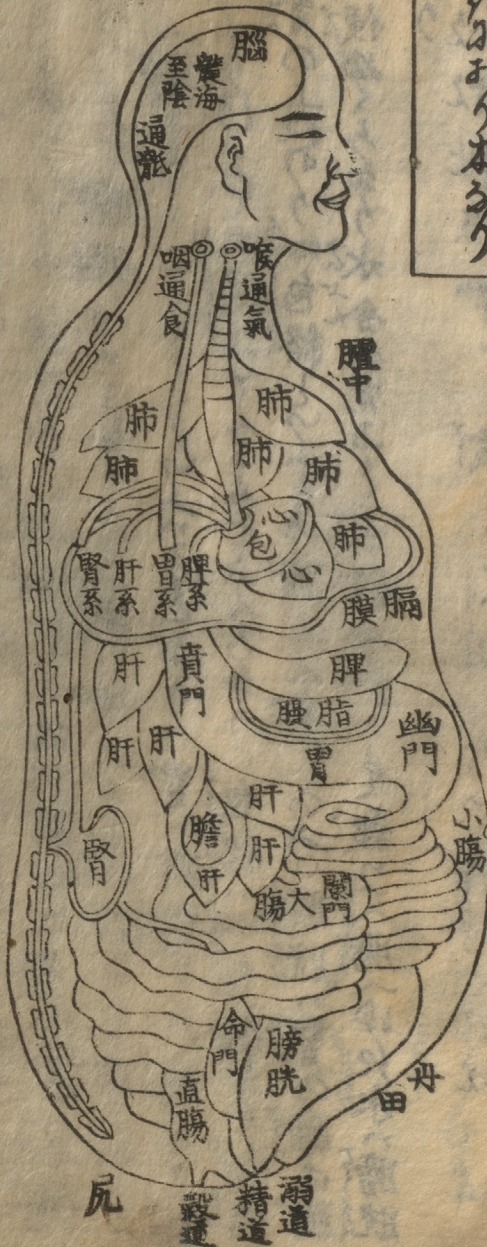 腦
髓海
至陰
通髓
咽通食
喉通氣
膻中
肺
肺
肺
肺
肺
肺
心包
心
腎系
肝系
胃系
脾系
膈膜
肝
賁門
脾
脂膜
胃
幽門
肝
肝
肝
膽
肝
肝
小腸
腎
大腸
闌門
命門
膀胱
直腸
丹田
尻
穀道
精道
溺道